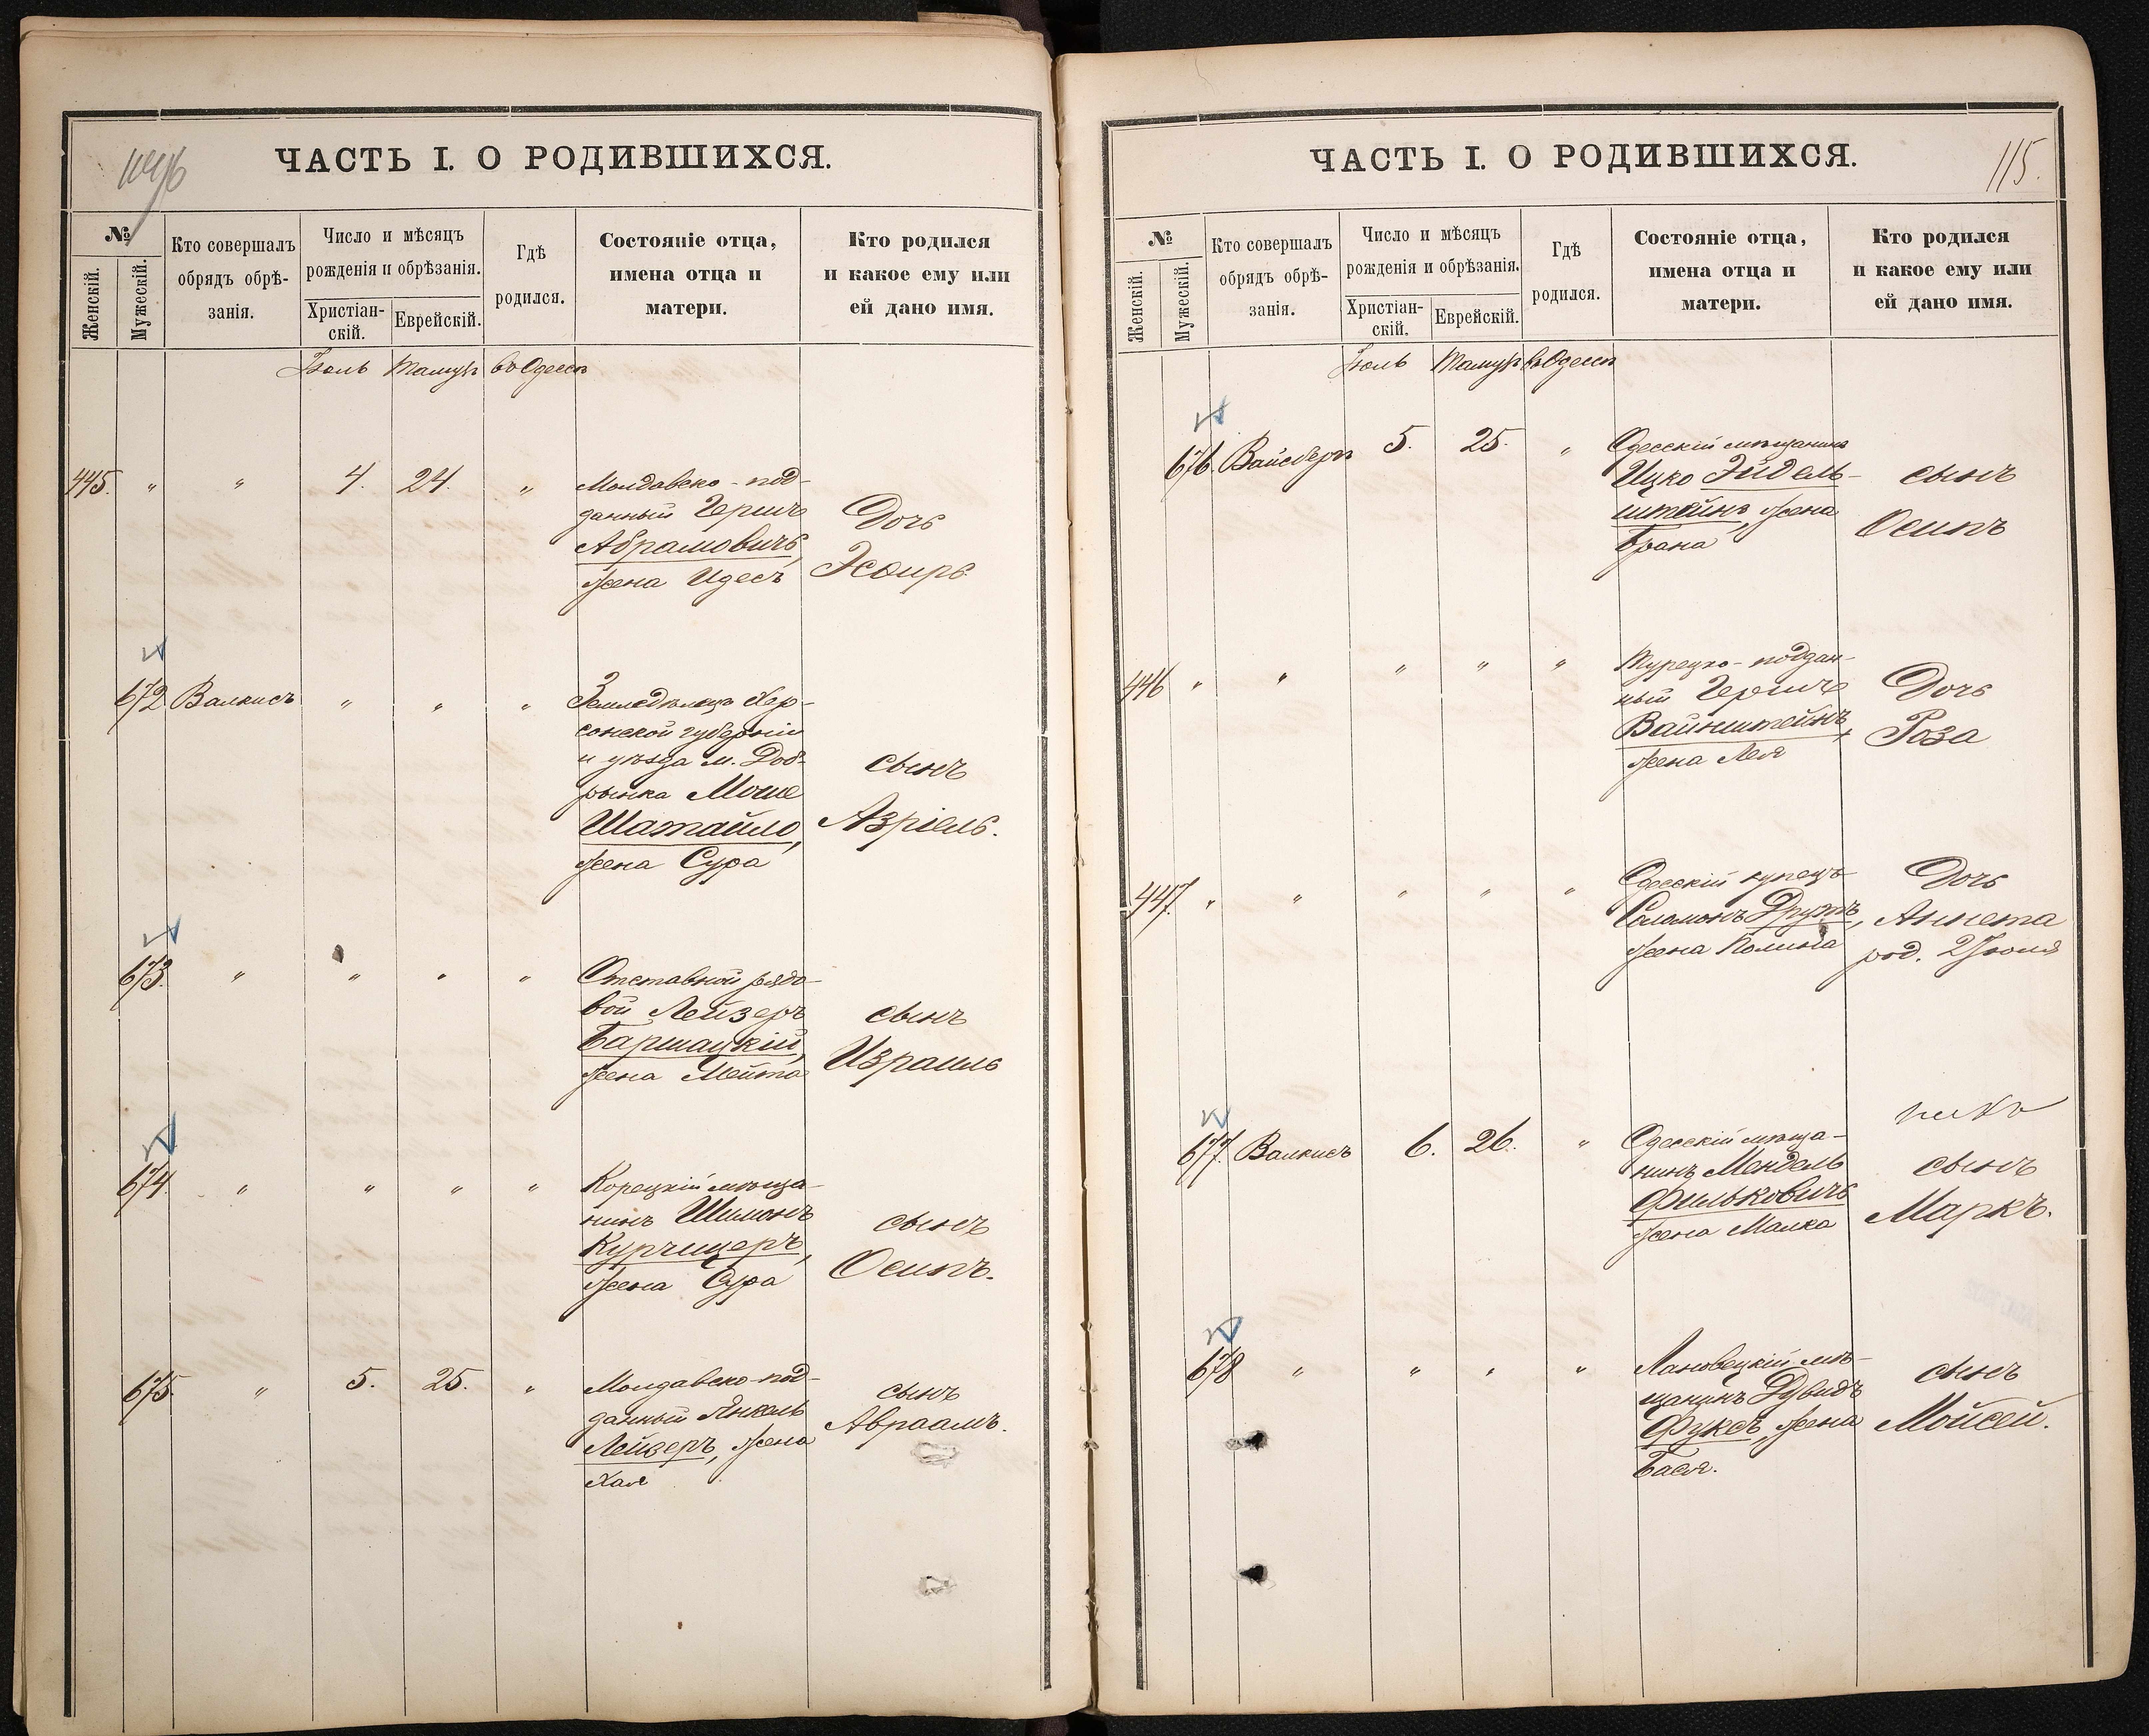 ЧАСТЬ I. О РОДИВШИХСЯ.
№
Женскій.
Мужескій.
Кто совершалъ
обрядъ обрѣ-
занія.
Число и мѣсяцъ
рожденія и обрѣзанія.
Христіан-
скій.
Еврейскій.
Гдѣ
родился.
Состояніе отца,
имена отца и
матери.
Кто родился
и какое ему или
ей дано имя.
Іюль Тамузъ въ Одессѣ
445. " " 4. 24. "
Молдавско-под-
данный Гершъ
Абрамовичъ,
жена Идесъ
Дочь
Эсфирь
672 Валкисъ " " "
Земледѣлецъ Хер-
сонской губерніи
и уѣзда м. Доб-
рынка Моше
Шатайло,
жена Сура
сынъ
Азріель.
673. " " " "
Отставной рядо-
вой Лейзеръ
Баршацкій,
жена Мейта
сынъ
Израиль
674. " " " "
Корецкій мѣща-
нинъ Шимонъ
Курчицеръ,
жена Сура
сынъ
Осипъ.
675. " 5. 25. "
Молдавско-под-
данный Янкель
Лейзеръ, жена
Хая
сынъ
Авраамъ.
ЧАСТЬ I. О РОДИВШИХСЯ.
115.
№
Женскій.
Мужескій.
Кто совершалъ
обрядъ обрѣ-
занія.
Число и мѣсяцъ
рожденія и обрѣзанія.
Христіан-
скій.
Еврейскій.
Гдѣ
родился.
Состояніе отца,
имена отца и
матери.
Кто родился
и какое ему или
ей дано имя.
Іюль Тамузъ въ Одессѣ
676. Вайсбергъ 5. 25. "
Одесскій мѣщанинъ
Ицко Эйдель-
штейнъ, жена
Брана
сынъ
Осипъ
446 " " " " "
Турецко-поддан-
ный Гершъ
Вайнштейнъ,
жена Лея
Дочь
Роза
447. " " " " "
Одесскій купецъ
Соломонъ Друтъ,
жена Полина
Дочь
Аннета
род. 2 Іюня
677. Валкисъ 6. 26. "
Одесскій мѣща-
нинъ Мендель
Фильковичъ
жена Малка
сынъ
Маркъ.
678 " " " "
Лановецкій мѣ-
щанинъ Дувидъ
Фуксъ, жена
Бася.
сынъ
Мойсей.